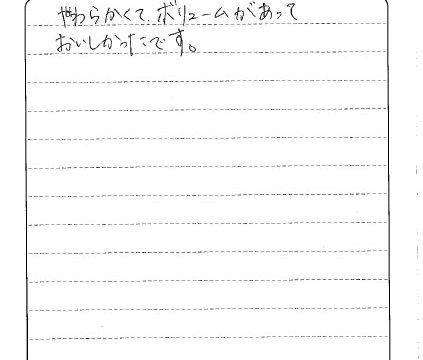 やわらかくて、ボリュームがあって
おいしかったです。